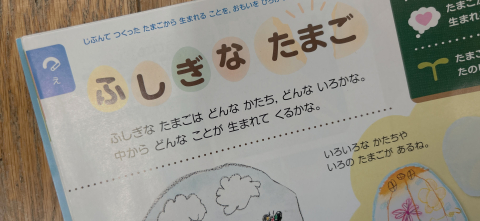 じぶんで つくった たまごから 生まれる ことを、おもいを
え
ふしぎな たまご
ふしぎな たまごは どんな かたち、どんな いろかな。
中から どんな ことが 生まれて くるかな。
いろいろな かたちや
いろの たまごが あるね。
たまご
生まれ
たまご
たの